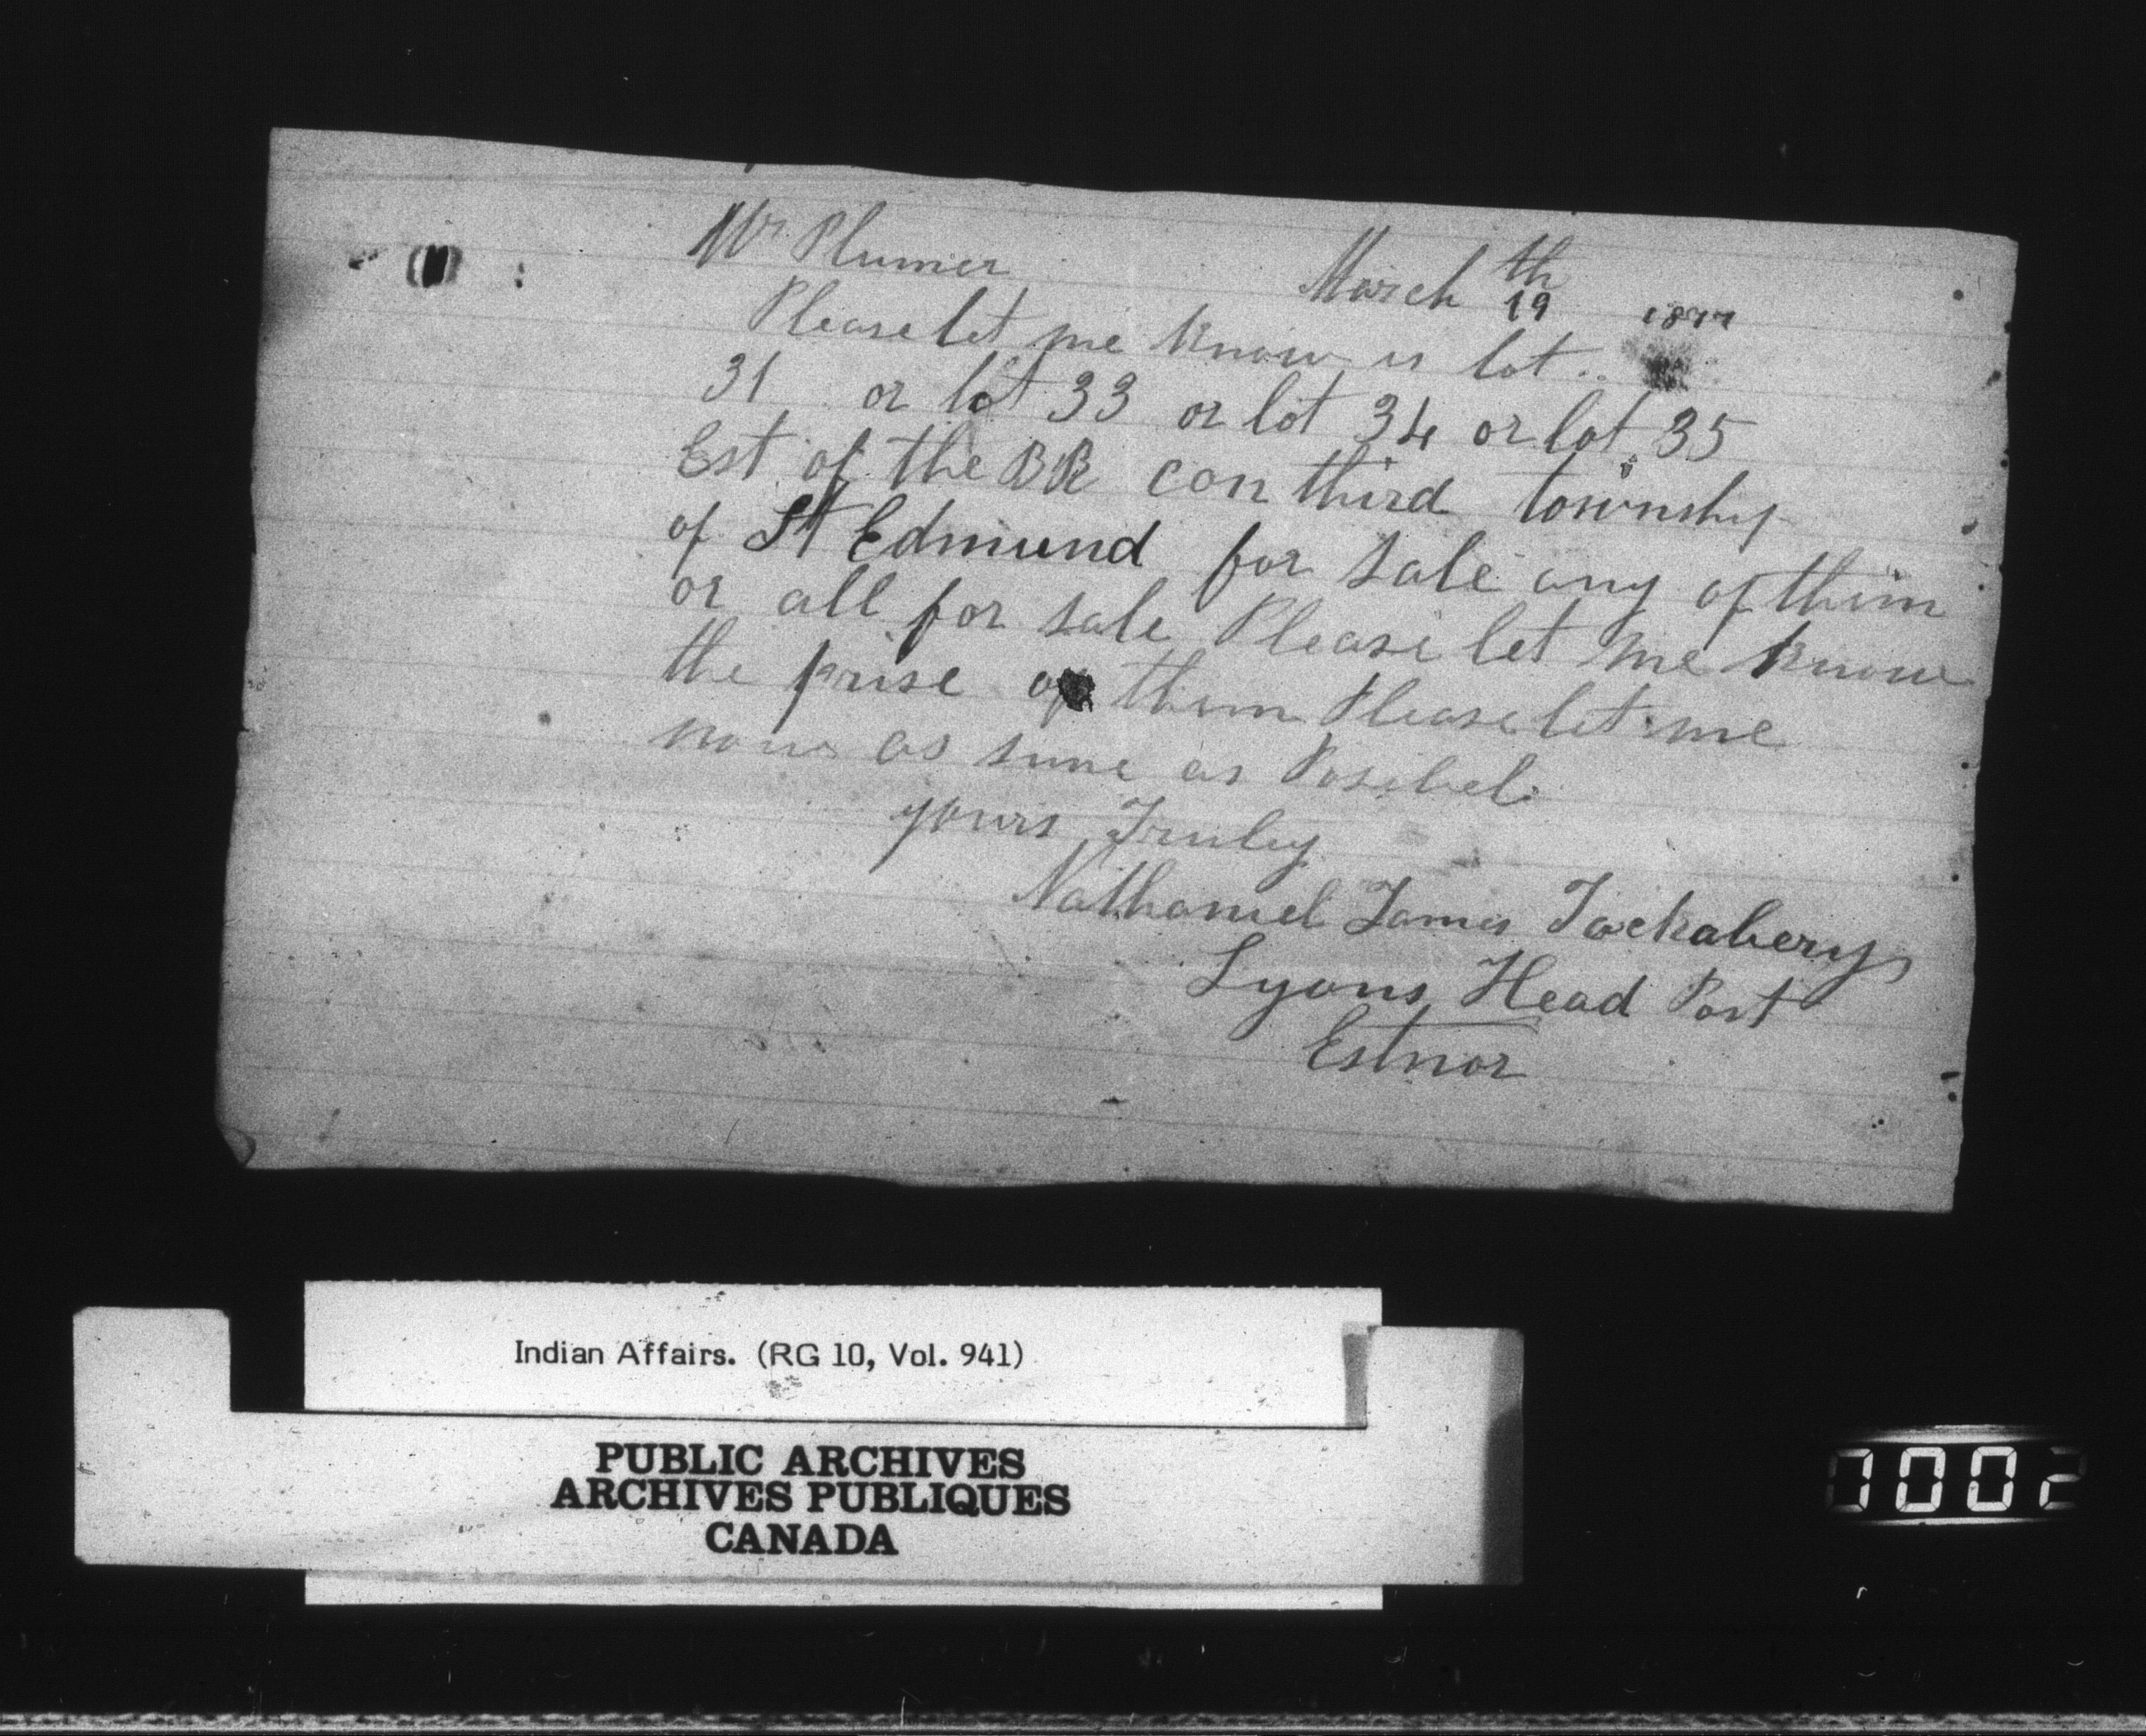 Mr Plumer
March 19th 1877
Please let me know is lot
31 or lot 33 or lot 34 or lot 35
Est of the BR con third township
of St Edmund for sale any of them
or all for sale Please let me know
the prise of them Please let me
now as sune as Posibel
yours Truley
Nathaniel James Tackabery
Lyons Head Post
Estnor
Indian Affairs. (RG 10, Vol. 941)
PUBLIC ARCHIVES
ARCHIVES PUBLIQUES
CANADA
1002